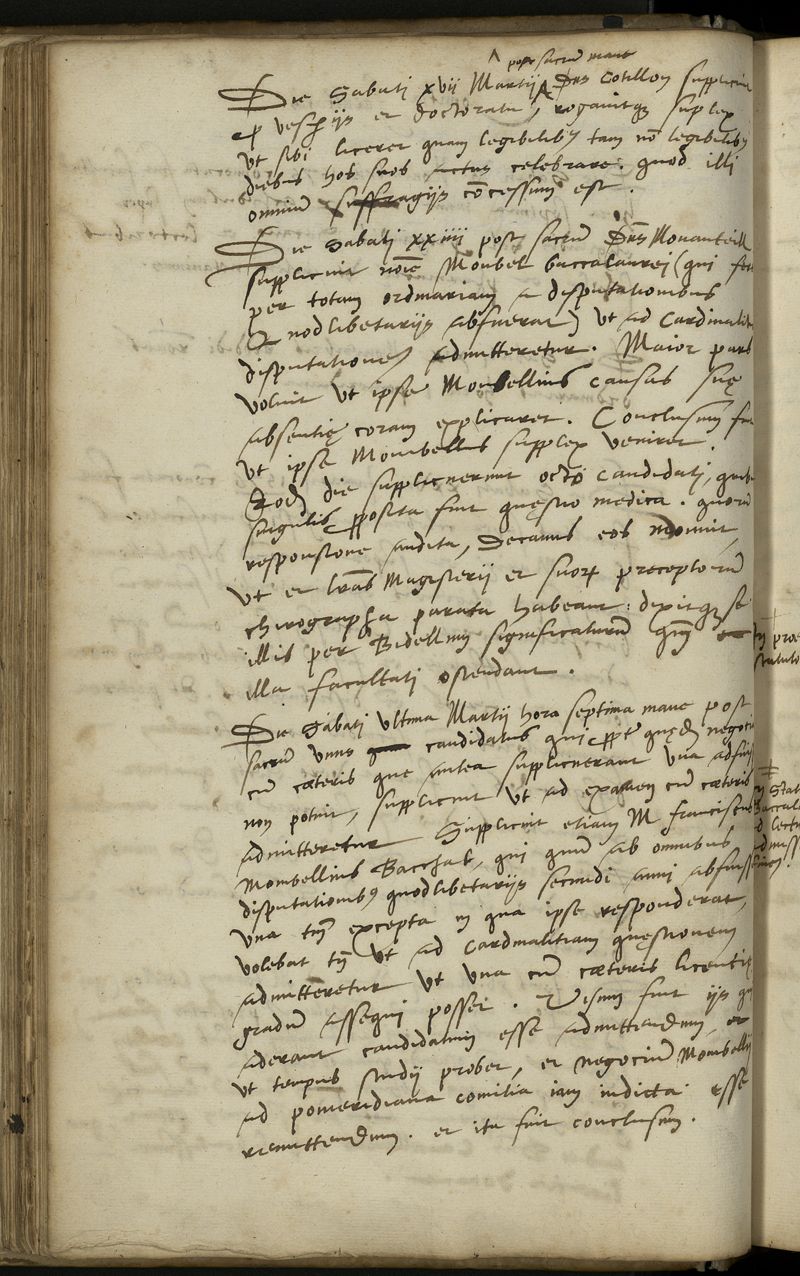 post sacrum mane
Die Sabati xvij Martij Dns Cotillon supplicuit
p vesperijs et doctoratu, rogavitq suplex
ut sibi liceret quam legibilibus tam nō legibilibus
diebus hos suos actus celebrare. quod illi
omniū suffragijs cōcessum est.
Die Sabati xxiiij post sacrū Dns Monanteuil
supplicuit noīe Monbel baccalaurei (qui fere
per totam ordinariam a disputationibus
Quodlibetarijs abfuerat) ut ad Cardinalitias
disputationes admitteretur. Maior pars
voluit ut ipse Monbellius causas suę
absentię coram explicaret. Conclusum fuit
ut ipse Mombellius supplex veniret.
Eodē die supplicuerunt octo candidati, quibus
singulis pposita fuit quęstio medica. quorū
responsione audita, Decanus eos monuit,
ut et lrās Magisterij et suorū preceptorum
chirographa parata habeant: dixitq se
illis per Bidellum significaturū quū
illa facultati ostendant.
Die Sabati ultima Martij hora septima mane post
sacrū unus candidatus qui ppter quędā negotia
cū cæteris que antea supplicuerant una adfuisse
non potuit, supplicuit ut ad examen cū cæteris
admitteretur Supplicuit etiam M Franciscus
Mombellius Bacchal, qui quū ab omnibus
disputationibus quodlibetarijs secundi anni abfuisset
una tm̄ excepta in qua ipse responderat,
volebat tm̄ ut ad Cardinalitiam quęstionem
admitteretur ut una cū cæteris licentię
gradum assequi posset. Visum fuit ijs qui
aderant candidatum esse admittendum, et
ut tempus studij probet, et negociū Mombellij
ad pomeridiana comitia iam indicta esse
remittendum. et ita fuit conclusum.